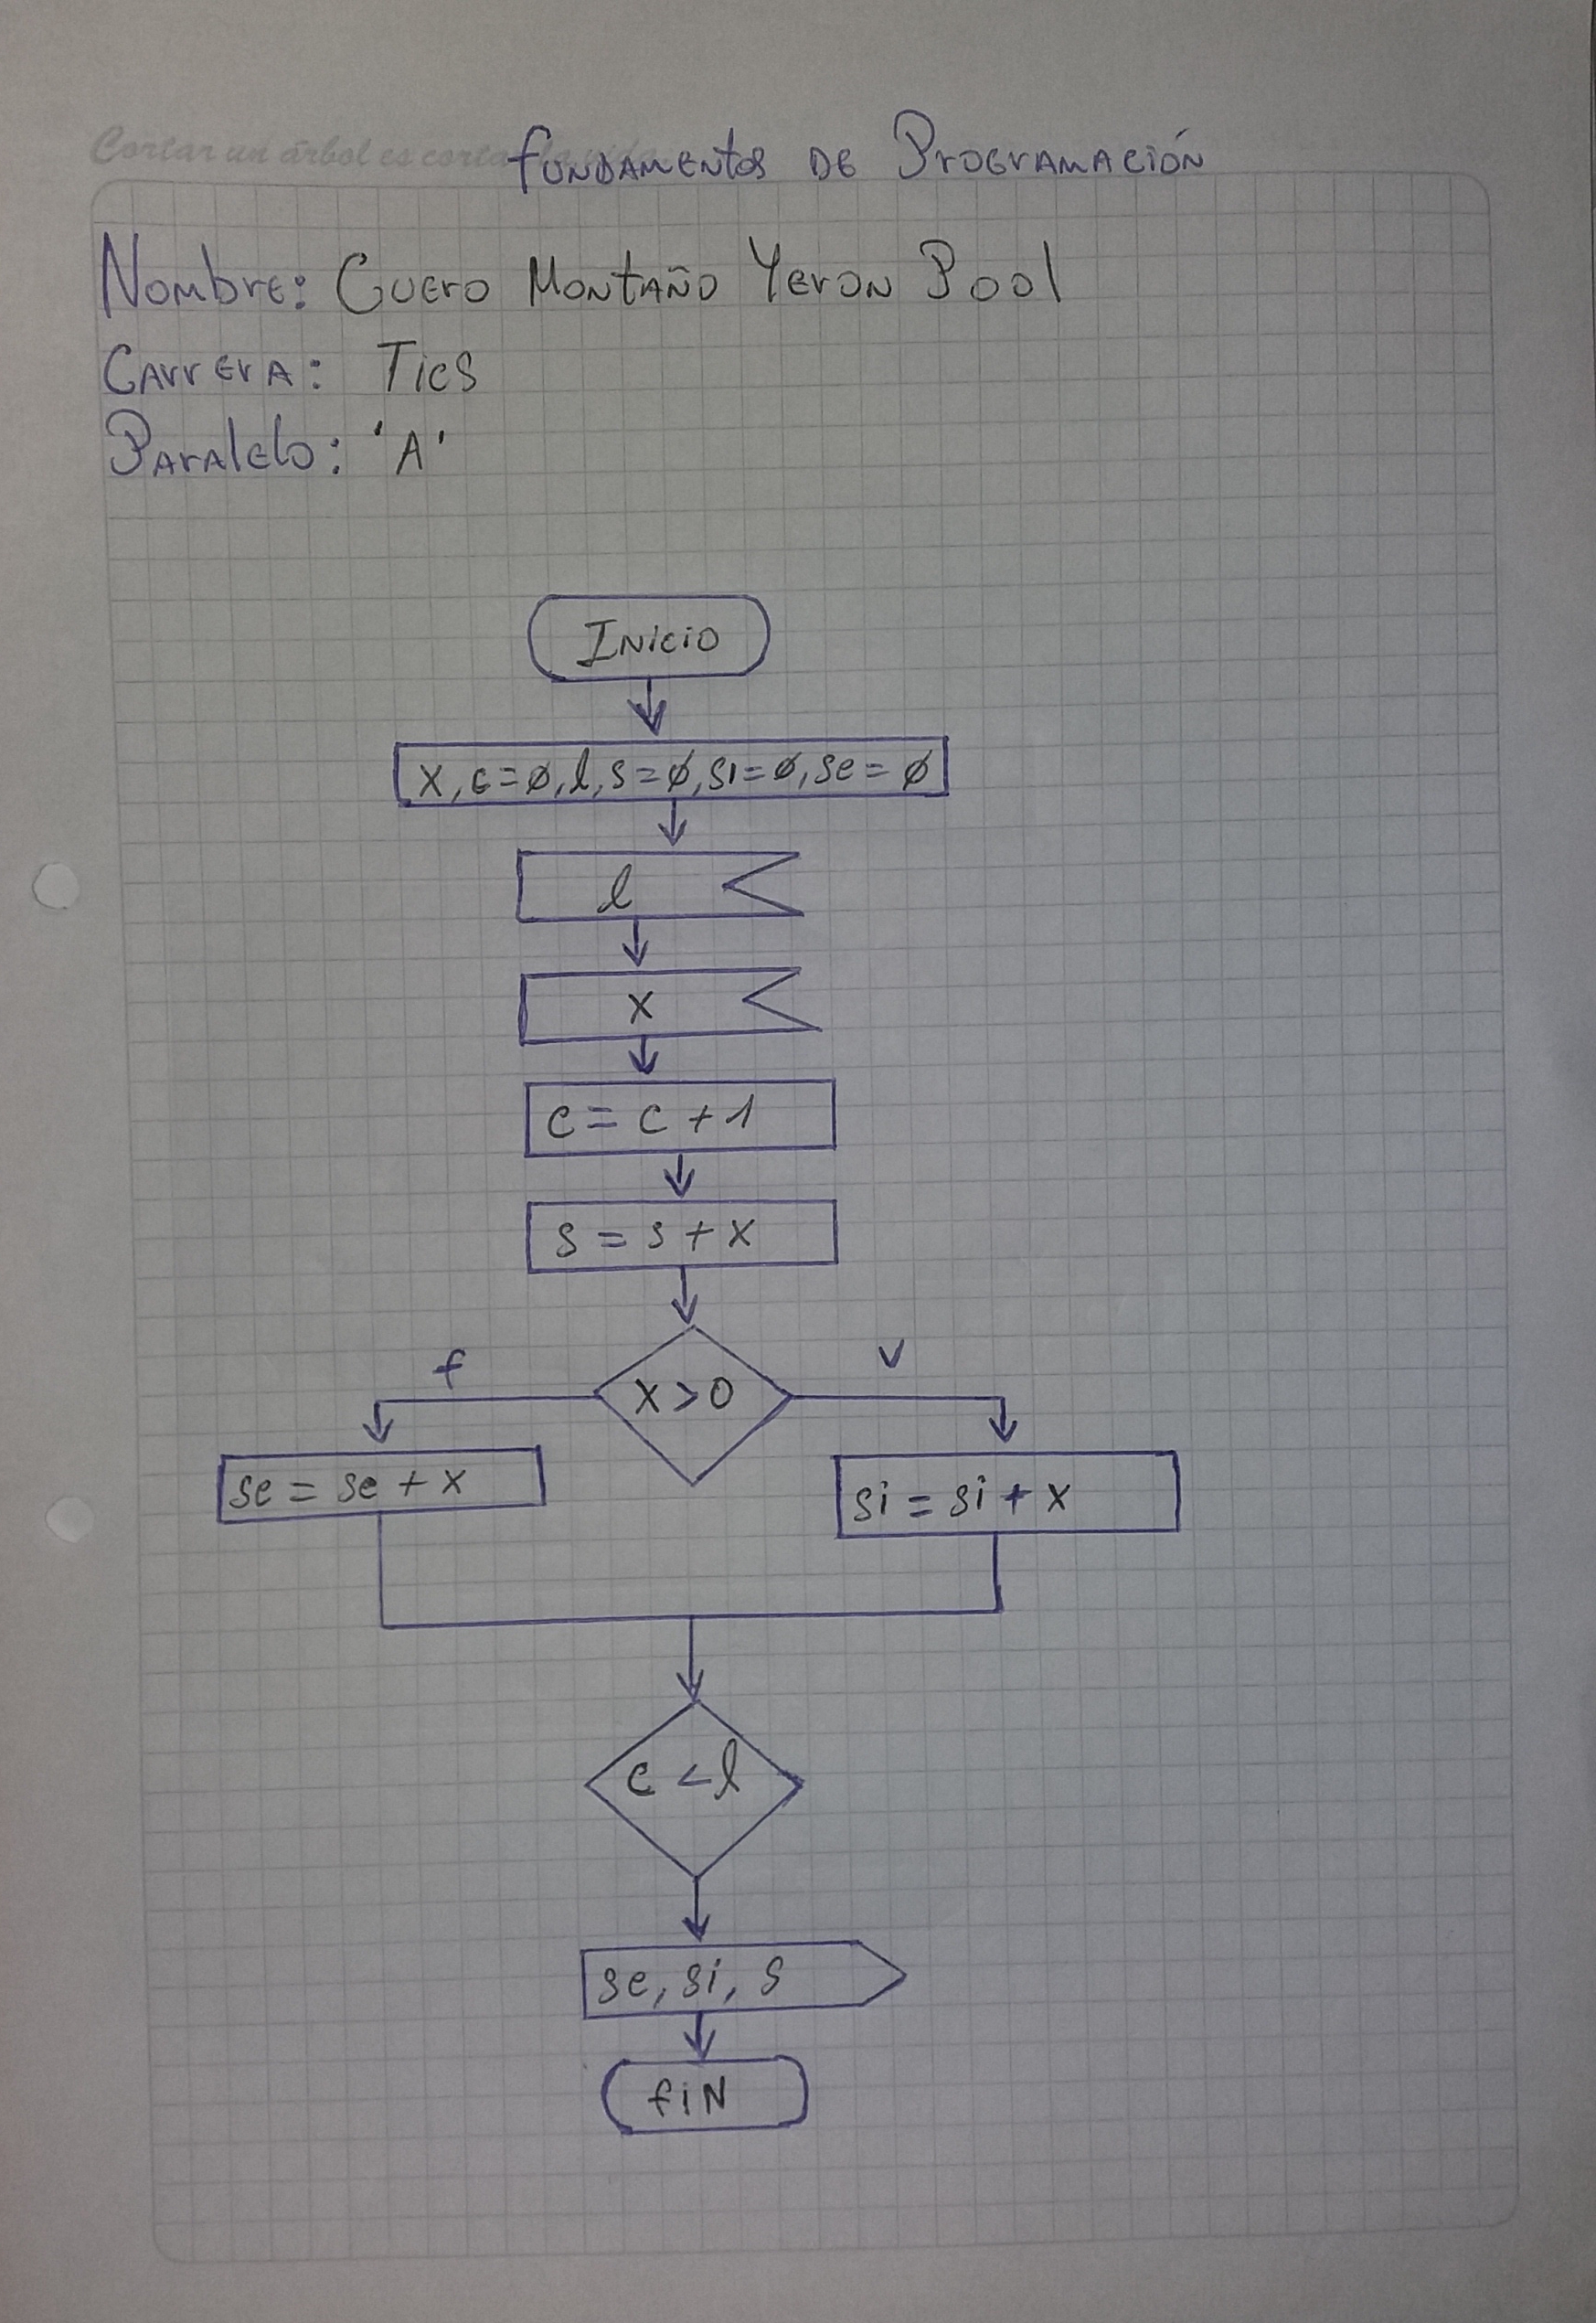 Cortar un árbol es cortar la vida
Fundamentos de Programación
Nombre: Cuero Montaño Yeron Pool
Carrera: Tics
Paralelo: 'A'
Inicio
x, c=ø, l, s=ø, si=ø, se=ø
l
x
c = c + 1
s = s + x
f
x > 0
v
se = se + x
si = si + x
c < l
se, si, s
fin